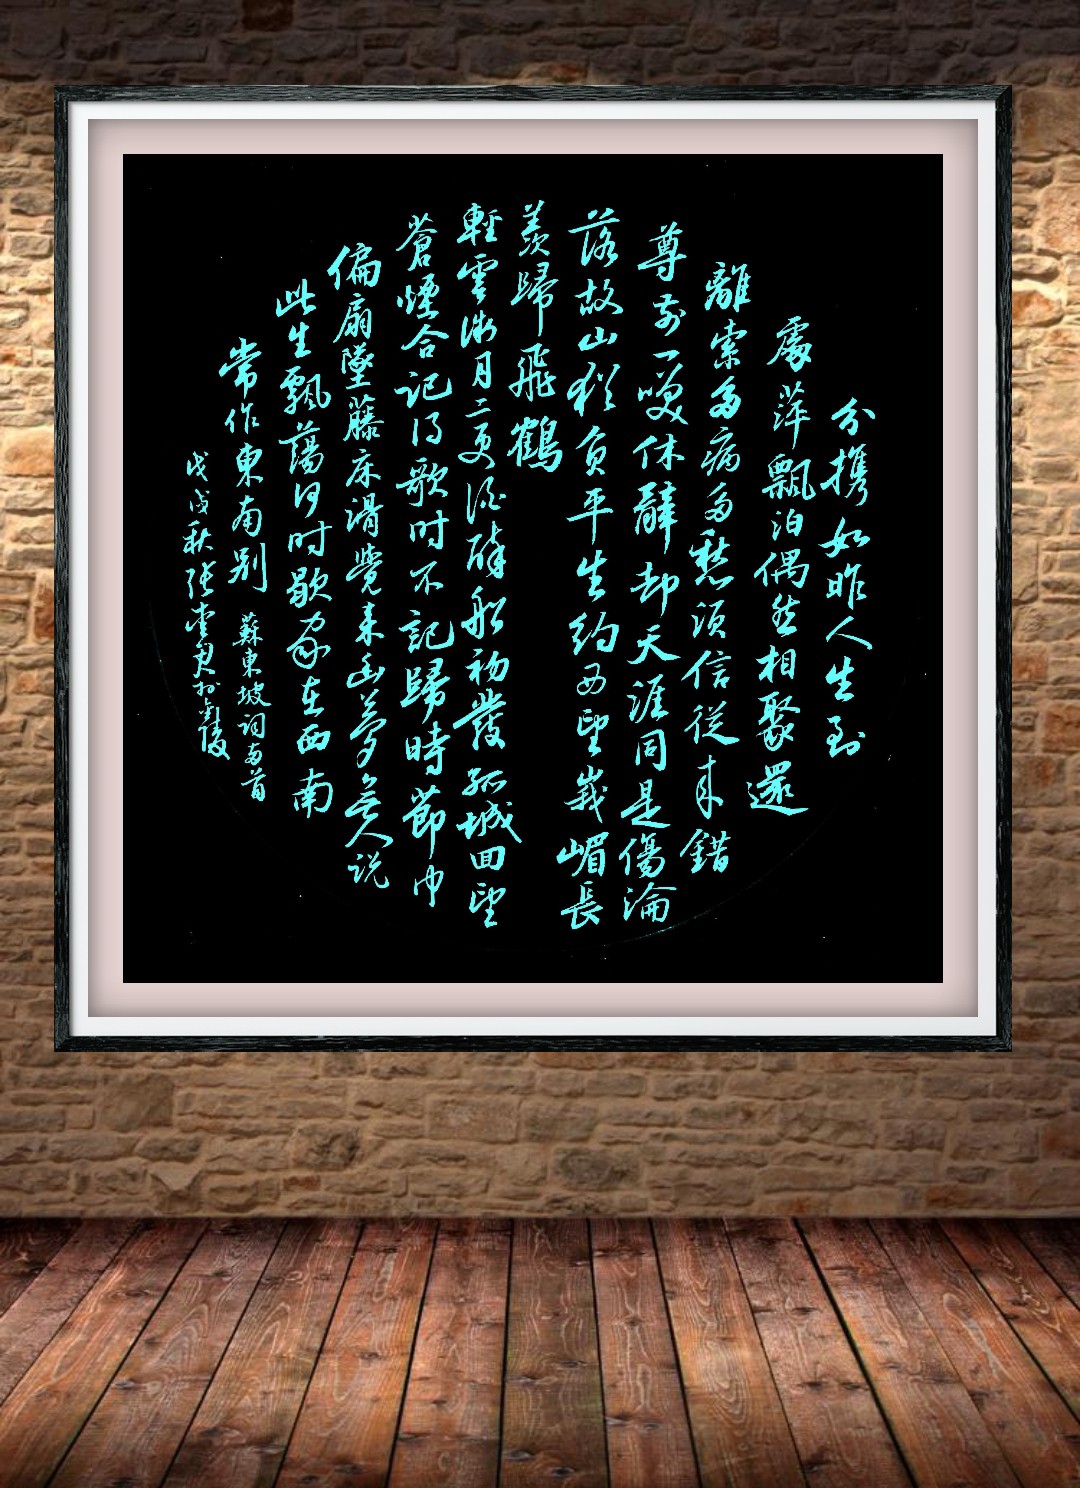 分携如昨人生到
處萍飄泊偶然相聚還
離索多病多愁須信從來錯
尊前一笑休辭却天涯同是傷淪
落故山猶負平生約西望峩嵋長
羨歸飛鶴
輕雲微月二更酒醉船初發孤城回望
蒼煙合記得歌時不記歸時節巾
偏扇墜藤床滑覺來幽夢無人说
此生飄蕩何時歇家在西南
常作東南别 蘇東坡词两首
戊戌秋張